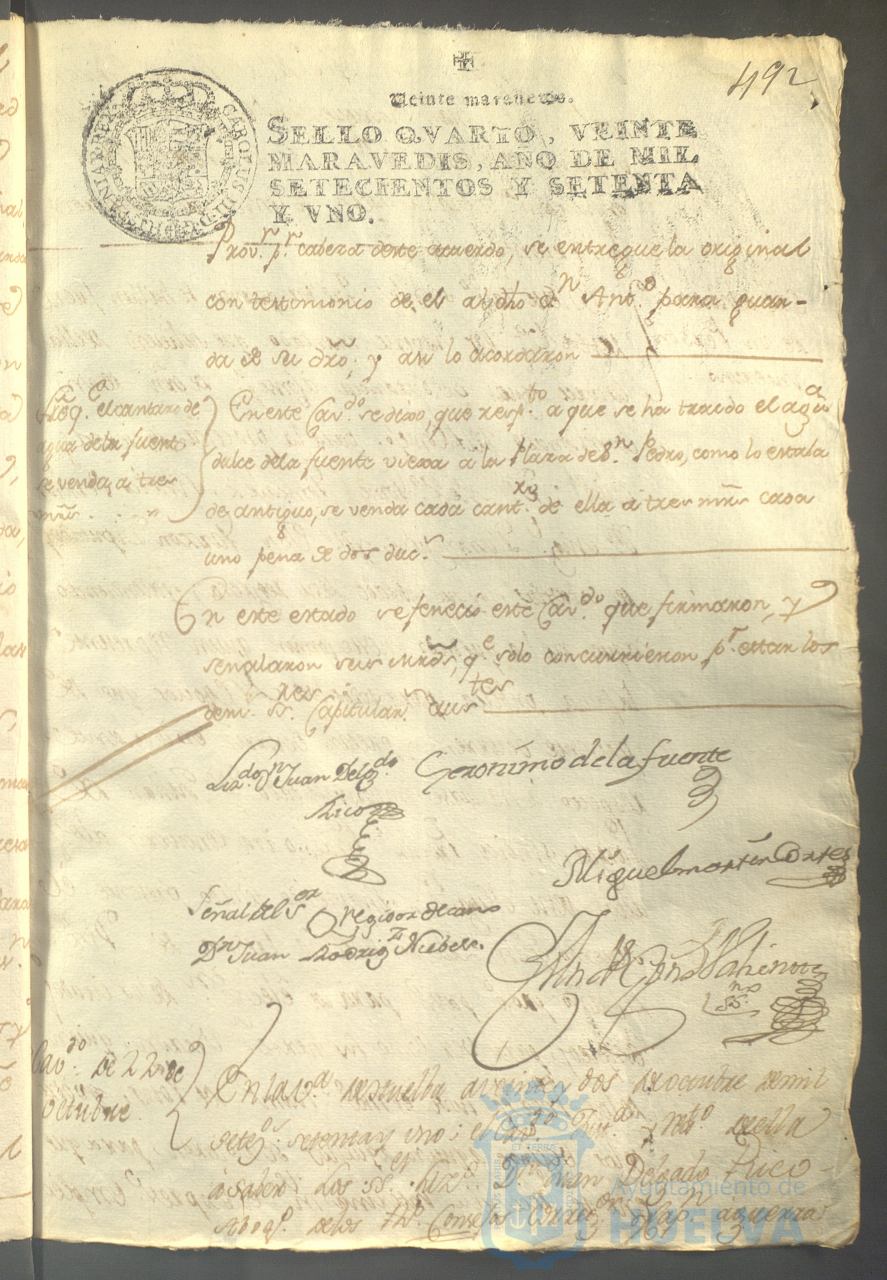 492
Veinte maravedis.
SELLO QVARTO, VEINTE
MARAVEDIS, AÑO DE MIL
SETECIENTOS Y SETENTA
Y VNO.
CAROLUS III D G HISPANIAR REX
Provn. pr. cabeza deste acuerdo, se entregue la original
con testimonio de el al dho Dn Anto. para guar-
da de su dro. y asi lo acordaron
Sre. qe. el cantaro de
agua dela fuente
se venda a tres
mrs.
En este Cavdo. se dixo, que respto. a que se ha traido el agua
dulce dela fuente viexa a la Plaza de Sn. Pedro, como lo estaba
de antiguo, se venda cada cantro. de ella a tres mrs. cada
uno pena de dos ducs.
En este estado se feneció este Cavdo. que firmaron, y
señalaron sus mrds, qe. solo concurrieron pr. estar los
dems. ss. Capitulares ausentes
Lizdo. Dn Juan Delgdo.
Rico
Geronimo de la fuente
Miguel martin Cortes
Señal del Sor. Regidor decano
Dn Juan Rodrigz Niebla.
Cavdo. de 22 de
Octubre
En la va. de Huelva a veinte y dos de octubre de mil
setezs. setenta y uno: el Justa. y Rexto. de ella
a saber: Los ss. Lizdo. Dn Juan Delgado Rico
Abogdo. delos Rs. Consejos Correxor. Cap. a guerra
Ayuntamiento de
HUELVA